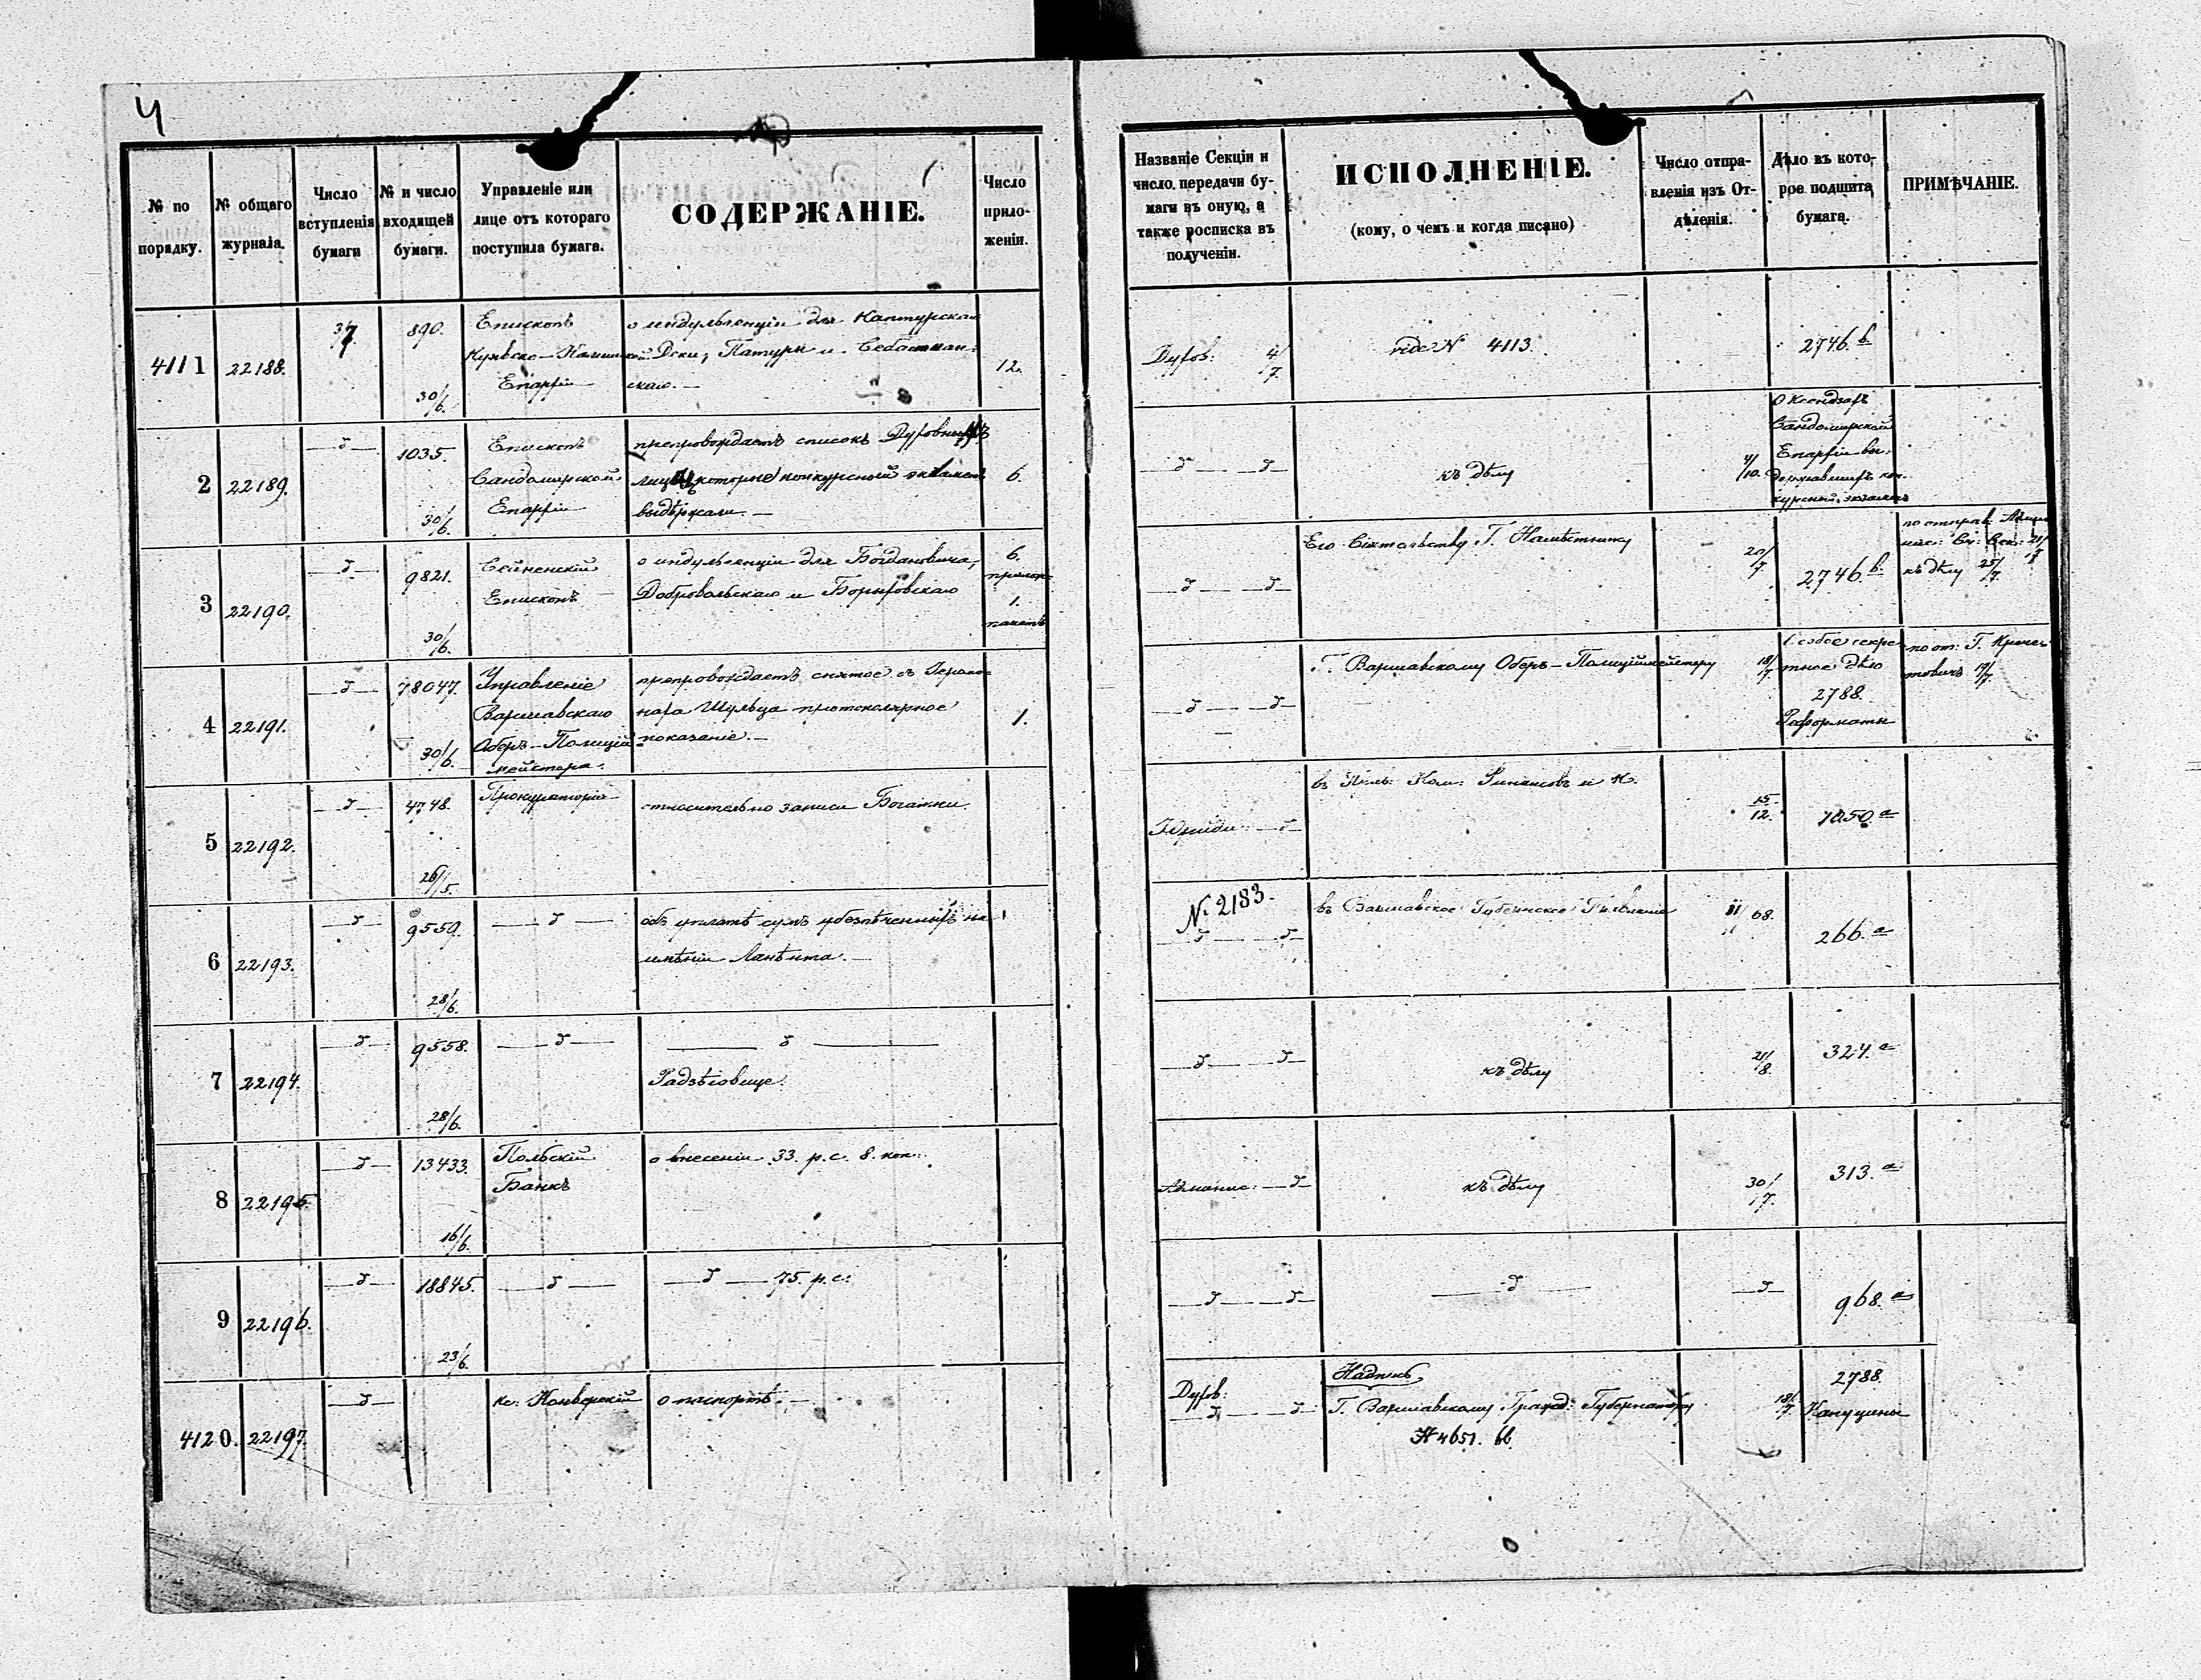 4
№ по порядку.
№ общаго журнала.
Число вступленія бумаги
№ и число входящей бумаги.
Управленіе или лице отъ котораго поступила бумага.
СОДЕРЖАНІЕ.
Число приложеній.
Названіе Секціи и число передачи бумаги въ оную, а также росписка въ полученіи.
ИСПОЛНЕНІЕ.
(кому, о чемъ и когда писано)
Число отправленія изъ Отдѣленія.
Дѣло въ которое подшита бумага.
ПРИМѢЧАНІЕ.
4111
22188.
3/7
890.
30/6.
Епископъ
Куявско-Калишской
Епархіи
о индульгенціи для
12.
Духов: 4/7.
vide N 4113.
2746. в.
2
22189.
—д—
1035.
30/6.
Епископъ
Сандомирской
Епархіи
препровождаетъ списокъ Духовныхъ
лицъ которые конкурсный экзаменъ
выдержали. —
6.
—д— —д—
къ дѣлу
4/10.
О Ксендзахъ
Сандомирской
Епархіи вы-
державшихъ кон-
курсный экзаменъ
3
22190.
—д—
9821.
30/6.
Сейненскій
Епископъ
о индульгенціи для Богдановича,
Добровольскаго и
6.
прилож.
1.
пакетъ
—д— —д—
Его Сіятельству Г. Намѣстнику
20/7
2746. в.
къ дѣлу 25/7.
4
22191.
—д—
78047.
30/6.
Управленіе
Варшавскаго
Оберъ-Полицій-
мейстера.
препровождаетъ снятое съ
Шульца протоколярное
показаніе. —
1.
—д— —д—
Г. Варшавскому Оберъ-Полиційместеру
18/7.
Особое секре-
тное дѣло
2788.
Реформаты
по от: Г.
19/7.
5
22192.
—д—
4748.
26/5.
Прокураторія
относительно записи
—д—
въ Ком: Финансовъ и К.
15/12.
1050. а
6
22193.
—д—
9559.
28/6.
—д—
объ уплатѣ сумъ убезпѣченныхъ на
имѣніи
1
№ 2183.
—д— —д—
въ Варшавское Губернское Правленіе
68.
266. а
7
22194.
—д—
9558.
28/6.
—д—
—д—
—д— —д—
къ дѣлу
21/8.
324. а
8
22195.
—д—
13433.
16/6.
Польскій
Банкъ
о внесеніи 33. р. с. 8. коп.
—д—
къ дѣлу
30/7.
313. а
9
22196.
—д—
18845.
23/6.
—д—
—д— 75. р. с.
—д— —д—
—д—
—д—
968. а
4120.
22197.
—д—
кс.
о паспортѣ. —
Духов:
—д— —д—
Надпись
Г. Варшавскому Гражд: Губернатору
N 4651. 66
18/7
2788
Капуцины